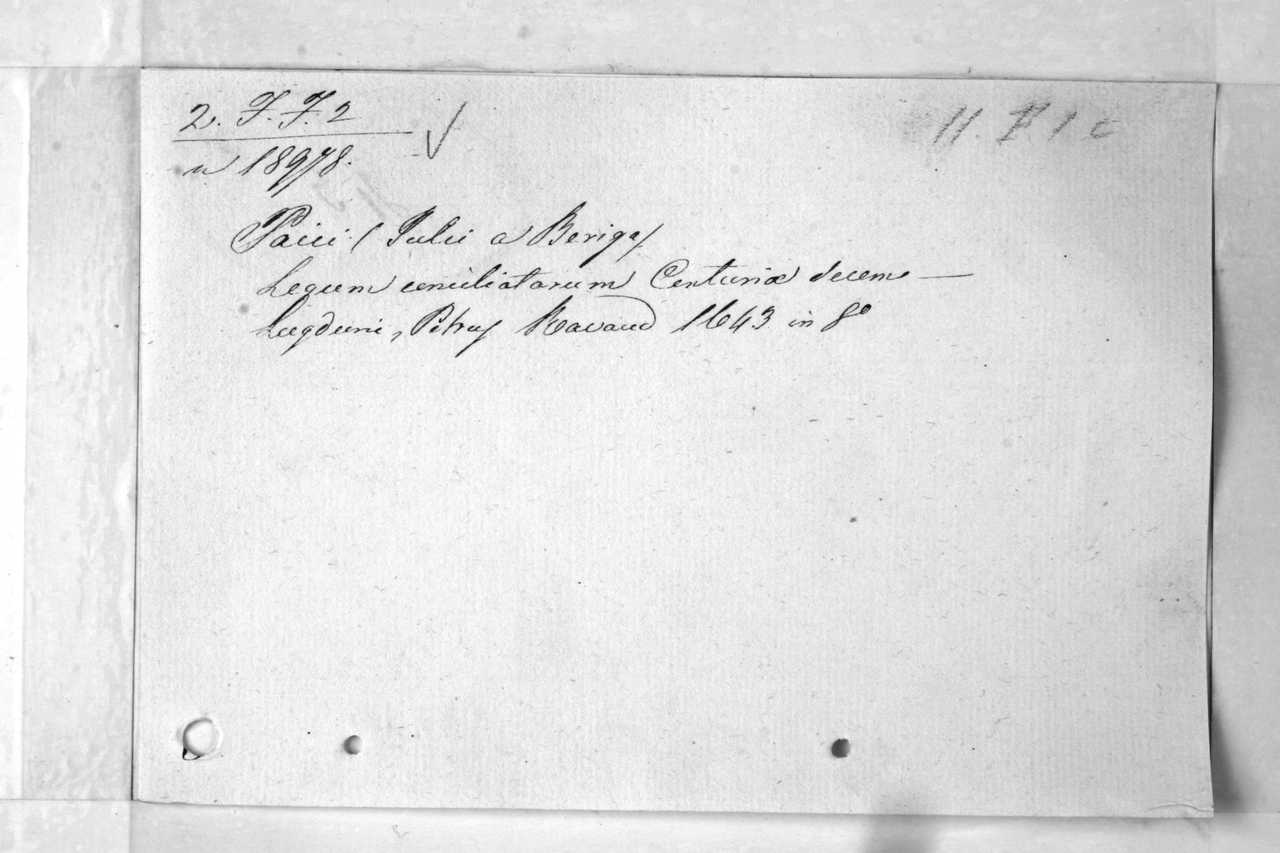 2. F. F. 2
n 18978.
11. F 1 c
Pacii (Julii a Beriga)
Legum conciliatarum Centuriæ decem —
Lugduni, Petrus Ravaud 1643 in 8º